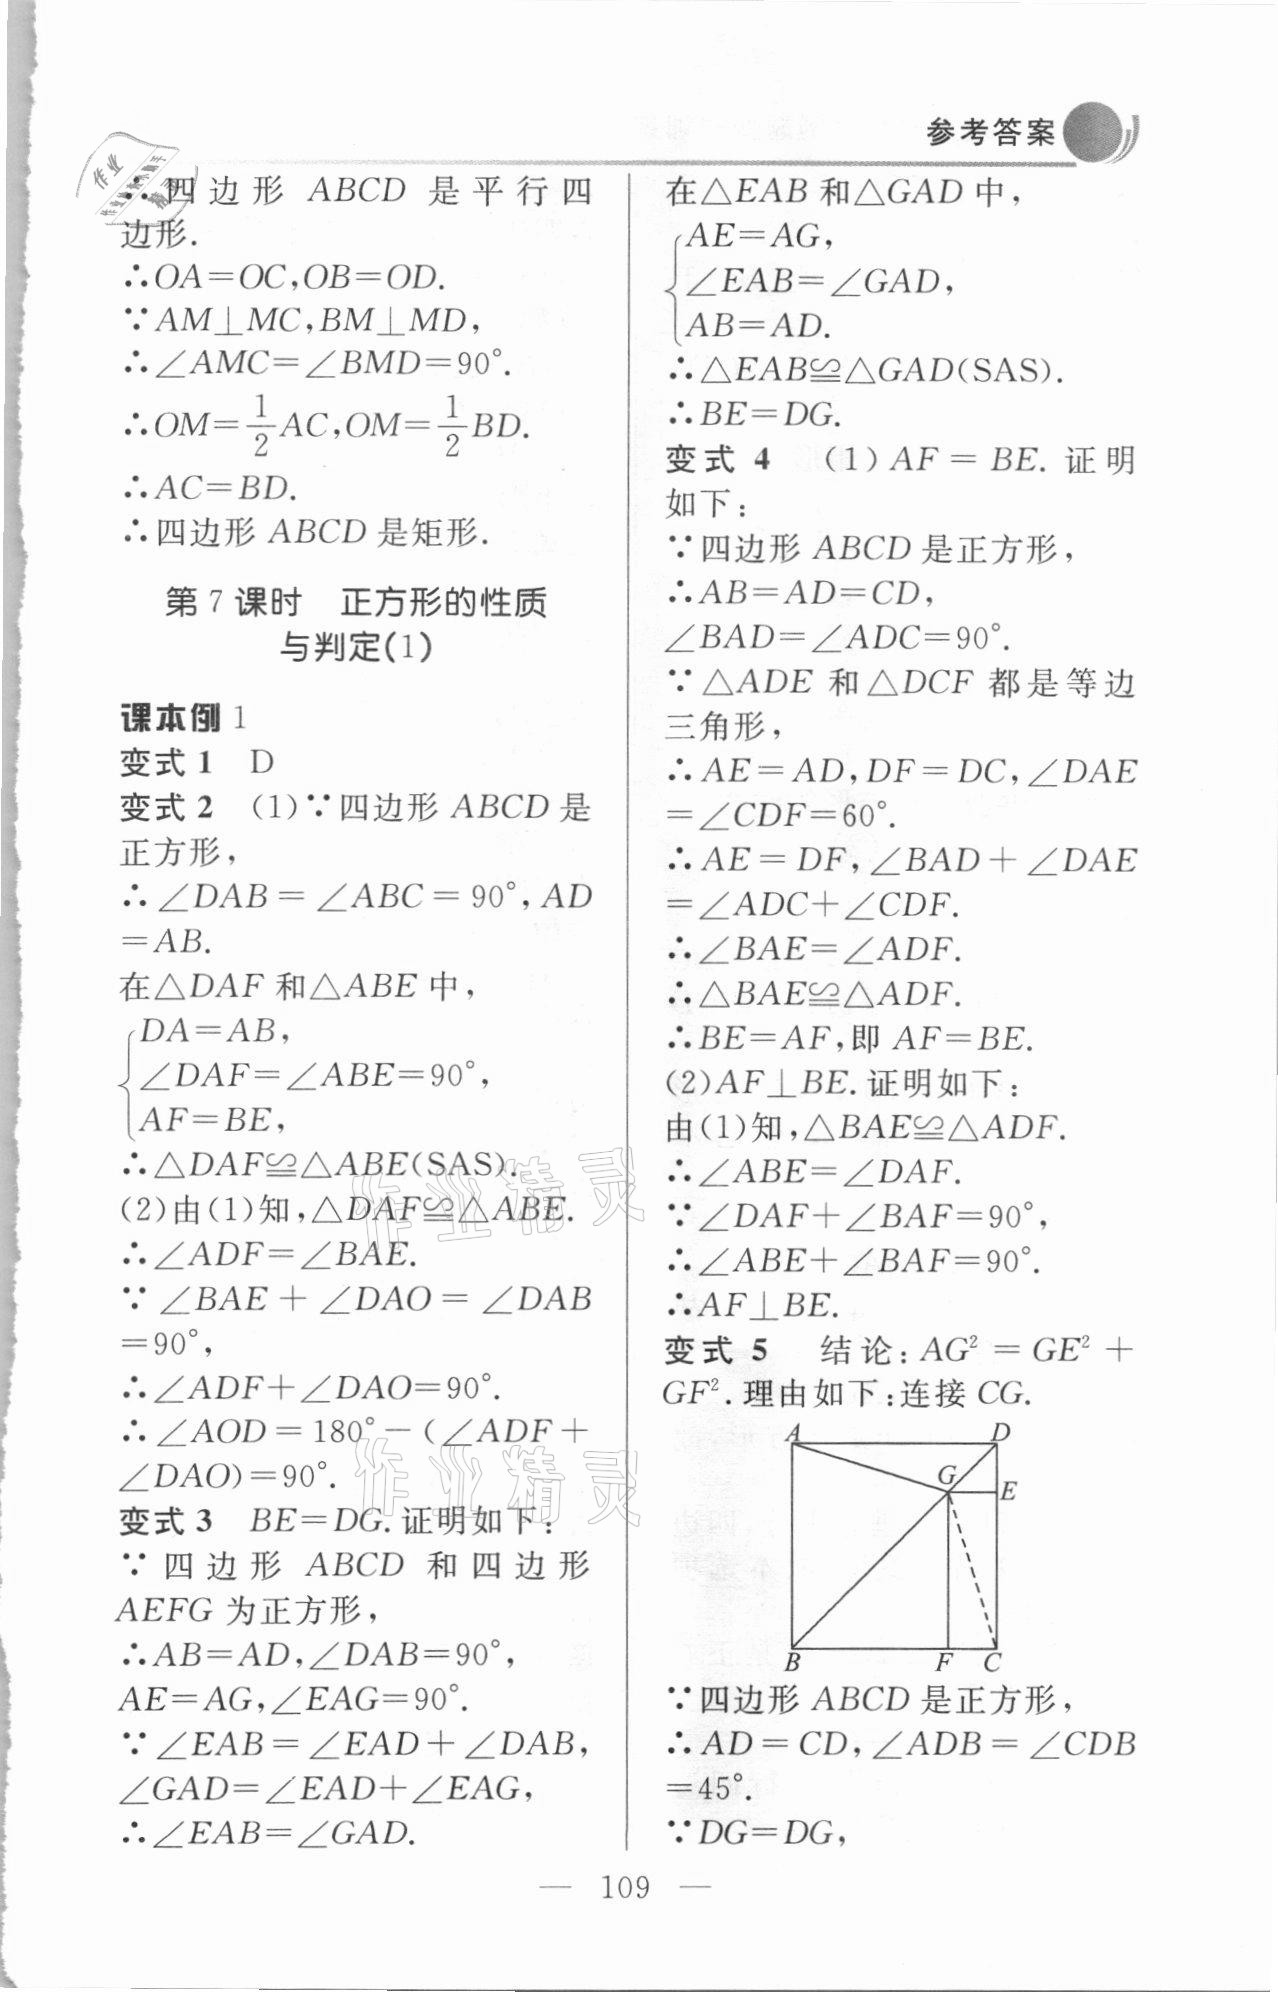 参考答案
∵四边形 ABCD 是平行四
边形.
∴OA=OC,OB=OD.
∵AM⊥MC,BM⊥MD,
∴∠AMC=∠BMD=90°.
∴OM=1/2AC,OM=1/2BD.
∴AC=BD.
∴四边形 ABCD 是矩形.
第 7 课时 正方形的性质
与判定(1)
课本例 1
变式 1 D
变式 2 (1)∵四边形 ABCD 是
正方形,
∴∠DAB=∠ABC=90°,AD
=AB.
在△DAF 和△ABE 中,
DA=AB,
∠DAF=∠ABE=90°,
AF=BE,
∴△DAF≌△ABE(SAS).
(2)由(1)知,△DAF≌△ABE.
∴∠ADF=∠BAE.
∵∠BAE+∠DAO=∠DAB
=90°,
∴∠ADF+∠DAO=90°.
∴∠AOD=180°-(∠ADF+
∠DAO)=90°.
变式 3 BE=DG.证明如下:
∵四边形 ABCD 和四边形
AEFG 为正方形,
∴AB=AD,∠DAB=90°,
AE=AG,∠EAG=90°.
∵∠EAB=∠EAD+∠DAB,
∠GAD=∠EAD+∠EAG,
∴∠EAB=∠GAD.
在△EAB 和△GAD 中,
AE=AG,
∠EAB=∠GAD,
AB=AD.
∴△EAB≌△GAD(SAS).
∴BE=DG.
变式 4 (1)AF=BE.证明
如下:
∵四边形 ABCD 是正方形,
∴AB=AD=CD,
∠BAD=∠ADC=90°.
∵△ADE 和△DCF 都是等边
三角形,
∴AE=AD,DF=DC,∠DAE
=∠CDF=60°.
∴AE=DF,∠BAD+∠DAE
=∠ADC+∠CDF.
∴∠BAE=∠ADF.
∴△BAE≌△ADF.
∴BE=AF,即 AF=BE.
(2)AF⊥BE.证明如下:
由(1)知,△BAE≌△ADF.
∴∠ABE=∠DAF.
∵∠DAF+∠BAF=90°,
∴∠ABE+∠BAF=90°.
∴AF⊥BE.
变式 5 结论:AG²=GE²+
GF².理由如下:连接 CG.
A D
G E
B F C
∵四边形 ABCD 是正方形,
∴AD=CD,∠ADB=∠CDB
=45°.
∵DG=DG,
— 109 —
作业精灵
作业精灵